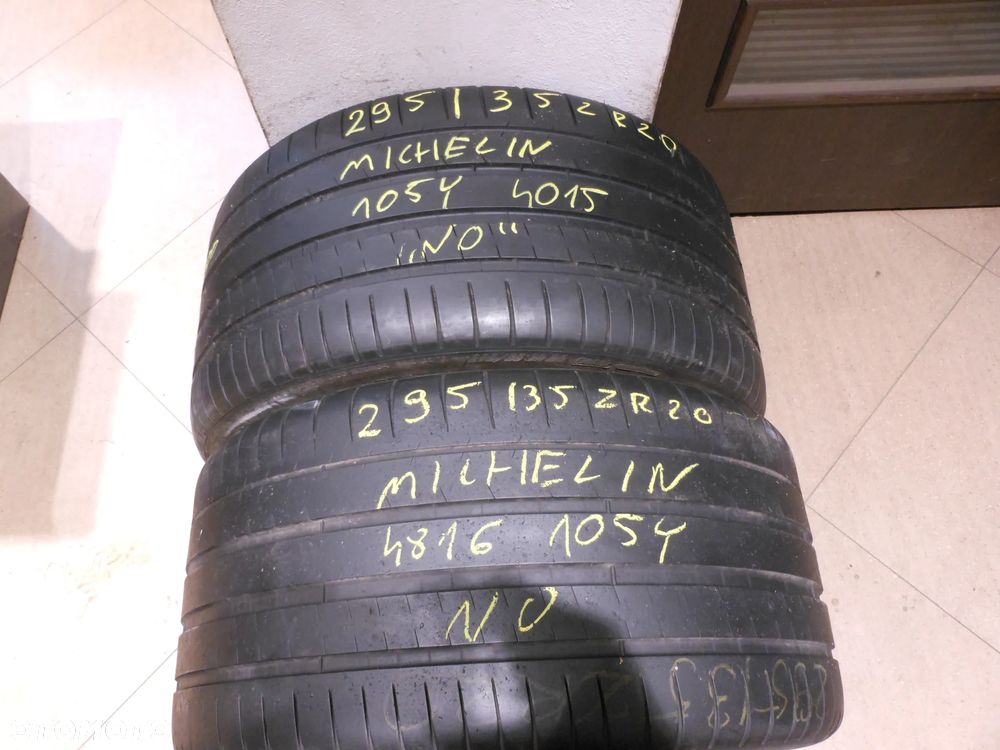 295/35 ZR20
MICHELIN
105Y 4015
„NO"
295/35 ZR20
MICHELIN
4816 105Y
NO